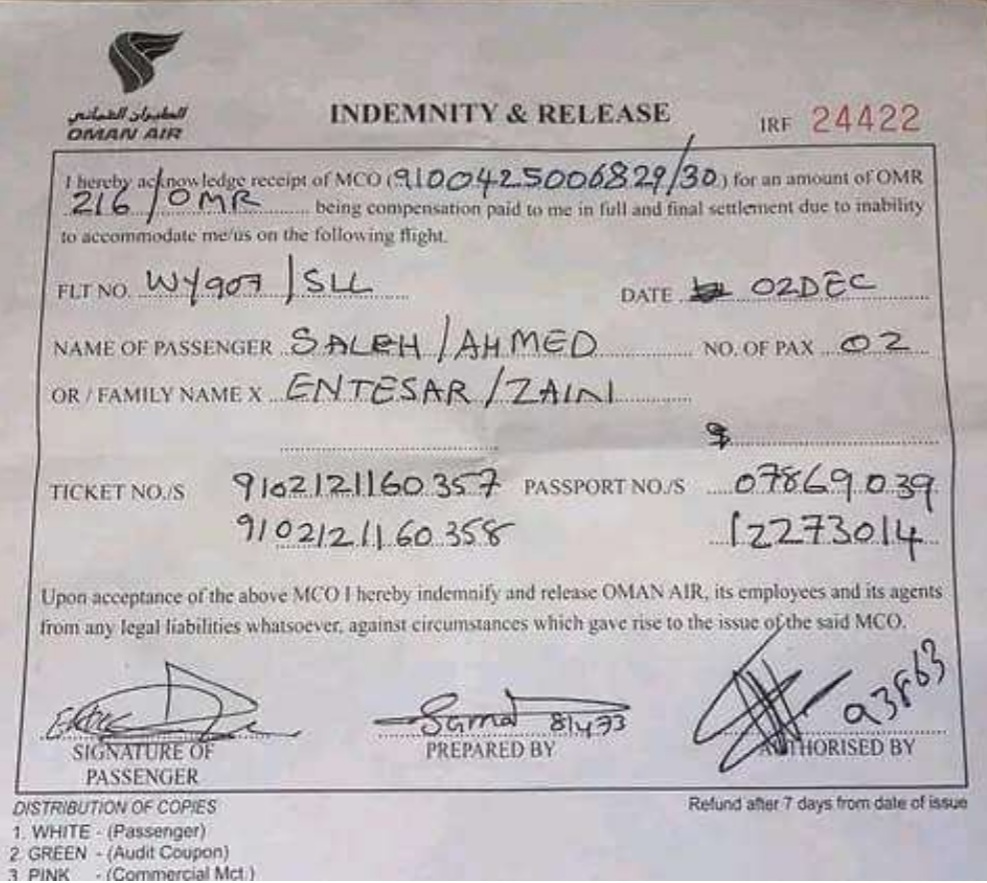 الطيران العماني
OMAN AIR
INDEMNITY & RELEASE
IRF 24422
I hereby acknowledge receipt of MCO (9100425006829/30) for an amount of OMR
216/OMR being compensation paid to me in full and final settlement due to inability
to accommodate me/us on the following flight.
FLT NO. WY907/SLL DATE 02DEC
NAME OF PASSENGER SALEH/AHMED NO. OF PAX 02
OR / FAMILY NAME X ENTESAR/ZAINI
TICKET NO./S 9102121160357 PASSPORT NO./S 07869039
9102121160358 12273014
Upon acceptance of the above MCO I hereby indemnify and release OMAN AIR, its employees and its agents
from any legal liabilities whatsoever, against circumstances which gave rise to the issue of the said MCO.
81473 a3863
SIGNATURE OF PASSENGER PREPARED BY AUTHORISED BY
DISTRIBUTION OF COPIES Refund after 7 days from date of issue
1. WHITE - (Passenger)
2. GREEN - (Audit Coupon)
3. PINK - (Commercial Mct.)